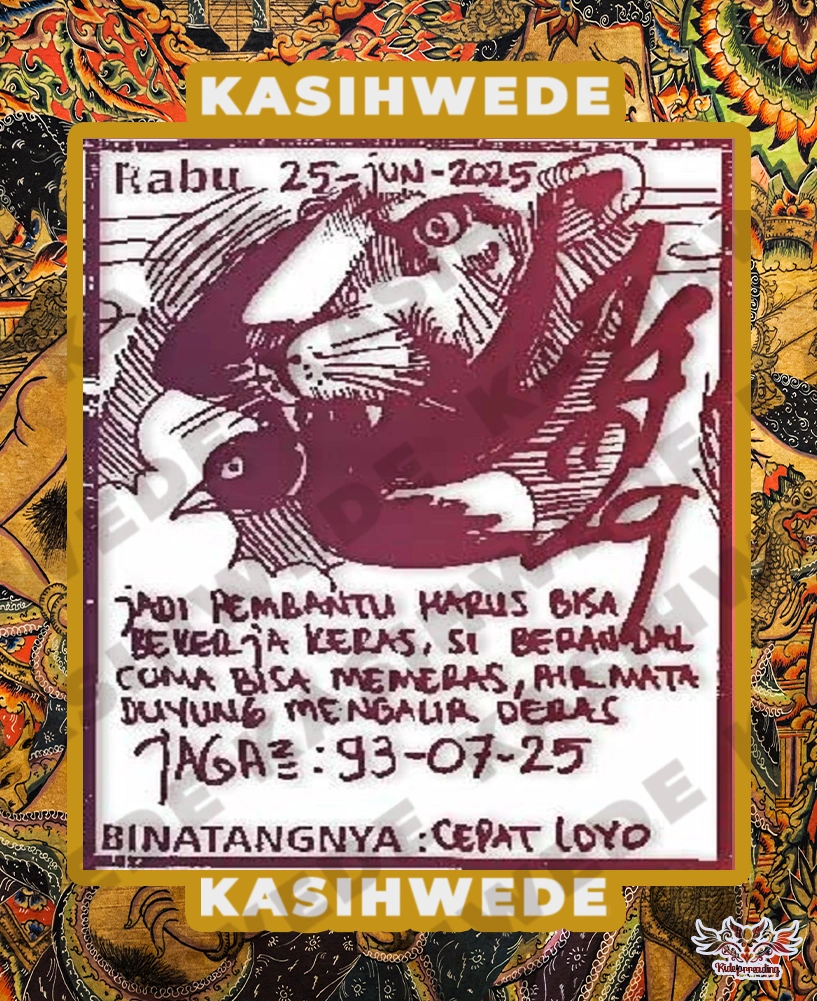 KASIHWEDE
Rabu 25-JUN-2025
JADI PEMBANTU HARUS BISA
BEKERJA KERAS, SI BERANDAL
CUMA BISA MEMERAS, AIR MATA
DUYUNG MENGALIR DERAS
JAGA2 : 93-07-25
BINATANGNYA : CEPAT LOYO
KASIHWEDE